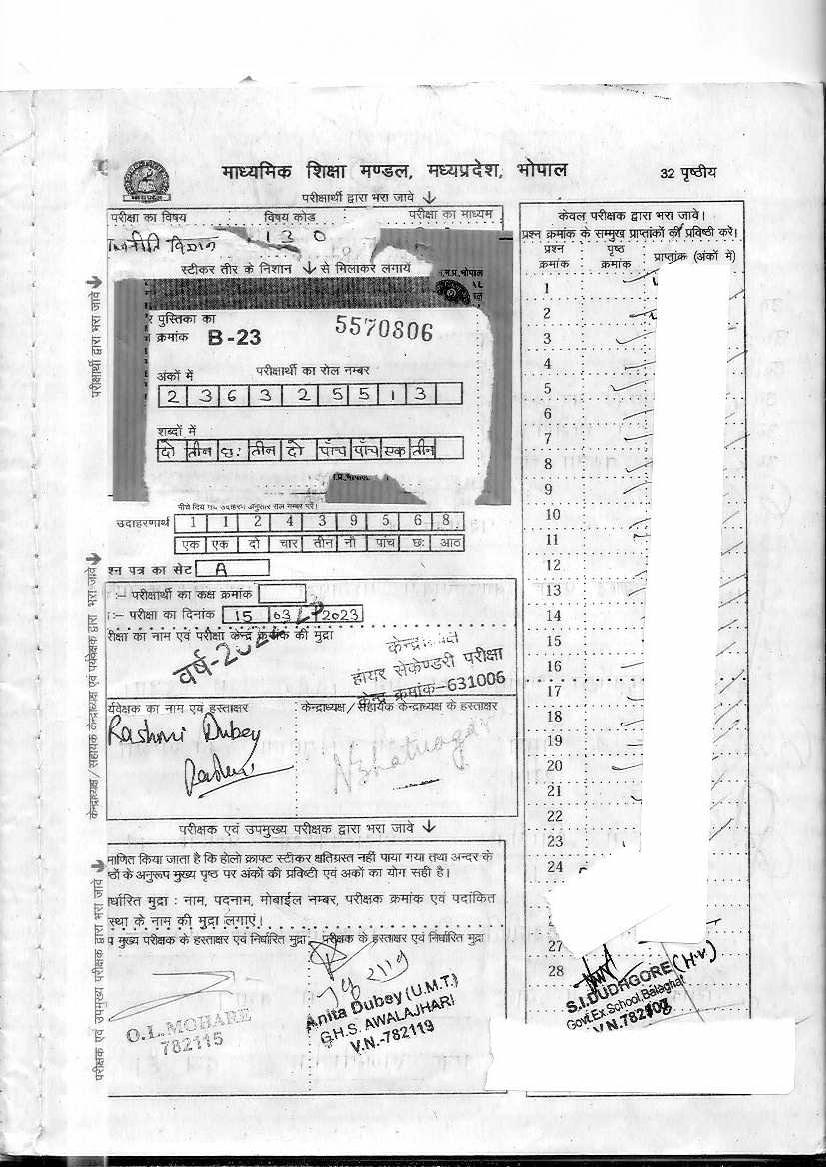 माध्यमिक शिक्षा मण्डल, मध्यप्रदेश, भोपाल
32 पृष्ठीय
परीक्षार्थी द्वारा भरा जावे ↓
परीक्षा का विषय विषय कोड परीक्षा का माध्यम
130
स्टीकर तीर के निशान ↓ से मिलाकर लगायें
र पुस्तिका का
क्रमांक B-23 5570806
परीक्षार्थी का रोल नम्बर
अंकों में
2 3 6 3 2 5 5 1 3
शब्दों में
दो तीन छः तीन दो पाँच पाँच एक तीन
उदाहरणार्थ 1 1 2 4 3 9 5 6 8
एक एक दो चार तीन नौ पांच छः आठ
श्न पत्र का सेट A
:– परीक्षार्थी का कक्ष क्रमांक
:– परीक्षा का दिनांक 15 03 2023
रीक्षा का नाम एवं परीक्षा केन्द्र क्रमांक की मुद्रा
हायर सेकेण्डरी परीक्षा
केन्द्र क्रमांक-631006
र्यवेक्षक का नाम एवं हस्ताक्षर
केन्द्राध्यक्ष / सहायक केन्द्राध्यक्ष के हस्ताक्षर
Rashmi Dubey
परीक्षक एवं उपमुख्य परीक्षक द्वारा भरा जावे ↓
माणित किया जाता है कि होलो क्राफ्ट स्टीकर क्षतिग्रस्त नहीं पाया गया तथा अन्दर के
ष्ठों के अनुरूप मुख्य पृष्ठ पर अंकों की प्रविष्टी एवं अंकों का योग सही है।
र्धारित मुद्रा : नाम, पदनाम, मोबाईल नम्बर, परीक्षक क्रमांक एवं पदांकित
स्था के नाम की मुद्रा लगाएं।
प मुख्य परीक्षक के हस्ताक्षर एवं निर्धारित मुद्रा
परीक्षक के हस्ताक्षर एवं निर्धारित मुद्रा
O.L. MOHARE
782115
Anita Dubey (U.M.T.)
G.H.S. AWALAJHARI
V.N.-782119
केवल परीक्षक द्वारा भरा जावे।
प्रश्न क्रमांक के सम्मुख प्राप्तांकों की प्रविष्टी करें।
प्रश्न क्रमांक
पृष्ठ क्रमांक
प्राप्तांक (अंकों में)
1
2
3
4
5
6
7
8
9
10
11
12
13
14
15
16
17
18
19
20
21
22
23
24
27
28
S.I.DUDHGORE (H.V.)
Govt.Ex.School.Balaghat
परीक्षार्थी द्वारा भरा जावे
केन्द्राध्यक्ष / सहायक केन्द्राध्यक्ष एवं पर्यवेक्षक द्वारा भरा जावे
परीक्षक एवं उपमुख्य परीक्षक द्वारा भरा जावे